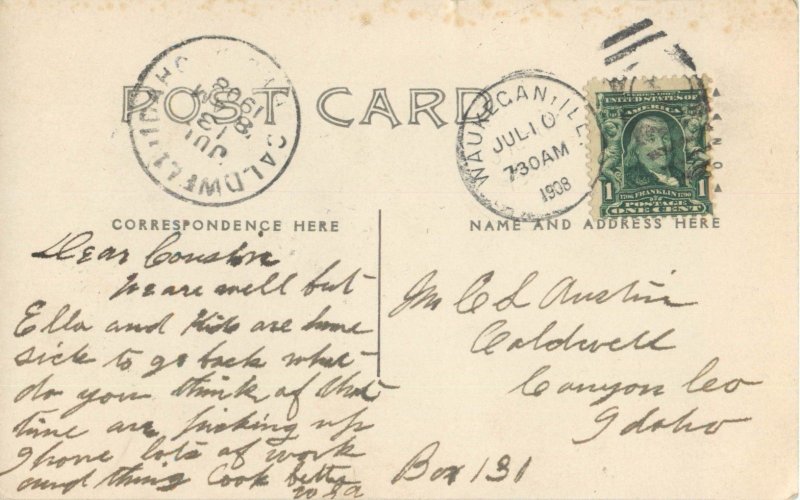 POST CARD
CALDWELL, IDAHO
JUL
13
8
1908
WAUKEGAN, ILL.
JUL 10
7-30AM
1908
UNITED STATES OF
1 1706 FRANKLIN 1790 1
POSTAGE
ONE CENT
CORRESPONDENCE HERE
NAME AND ADDRESS HERE
Dear Cousin
We are well but
Ella and Kids are home
sick to go back what
do you think of that
time are picking up
I have lots of work
and thing look better
Mr C L Austin
Caldwell
Canyon Co
Idaho
Box 131